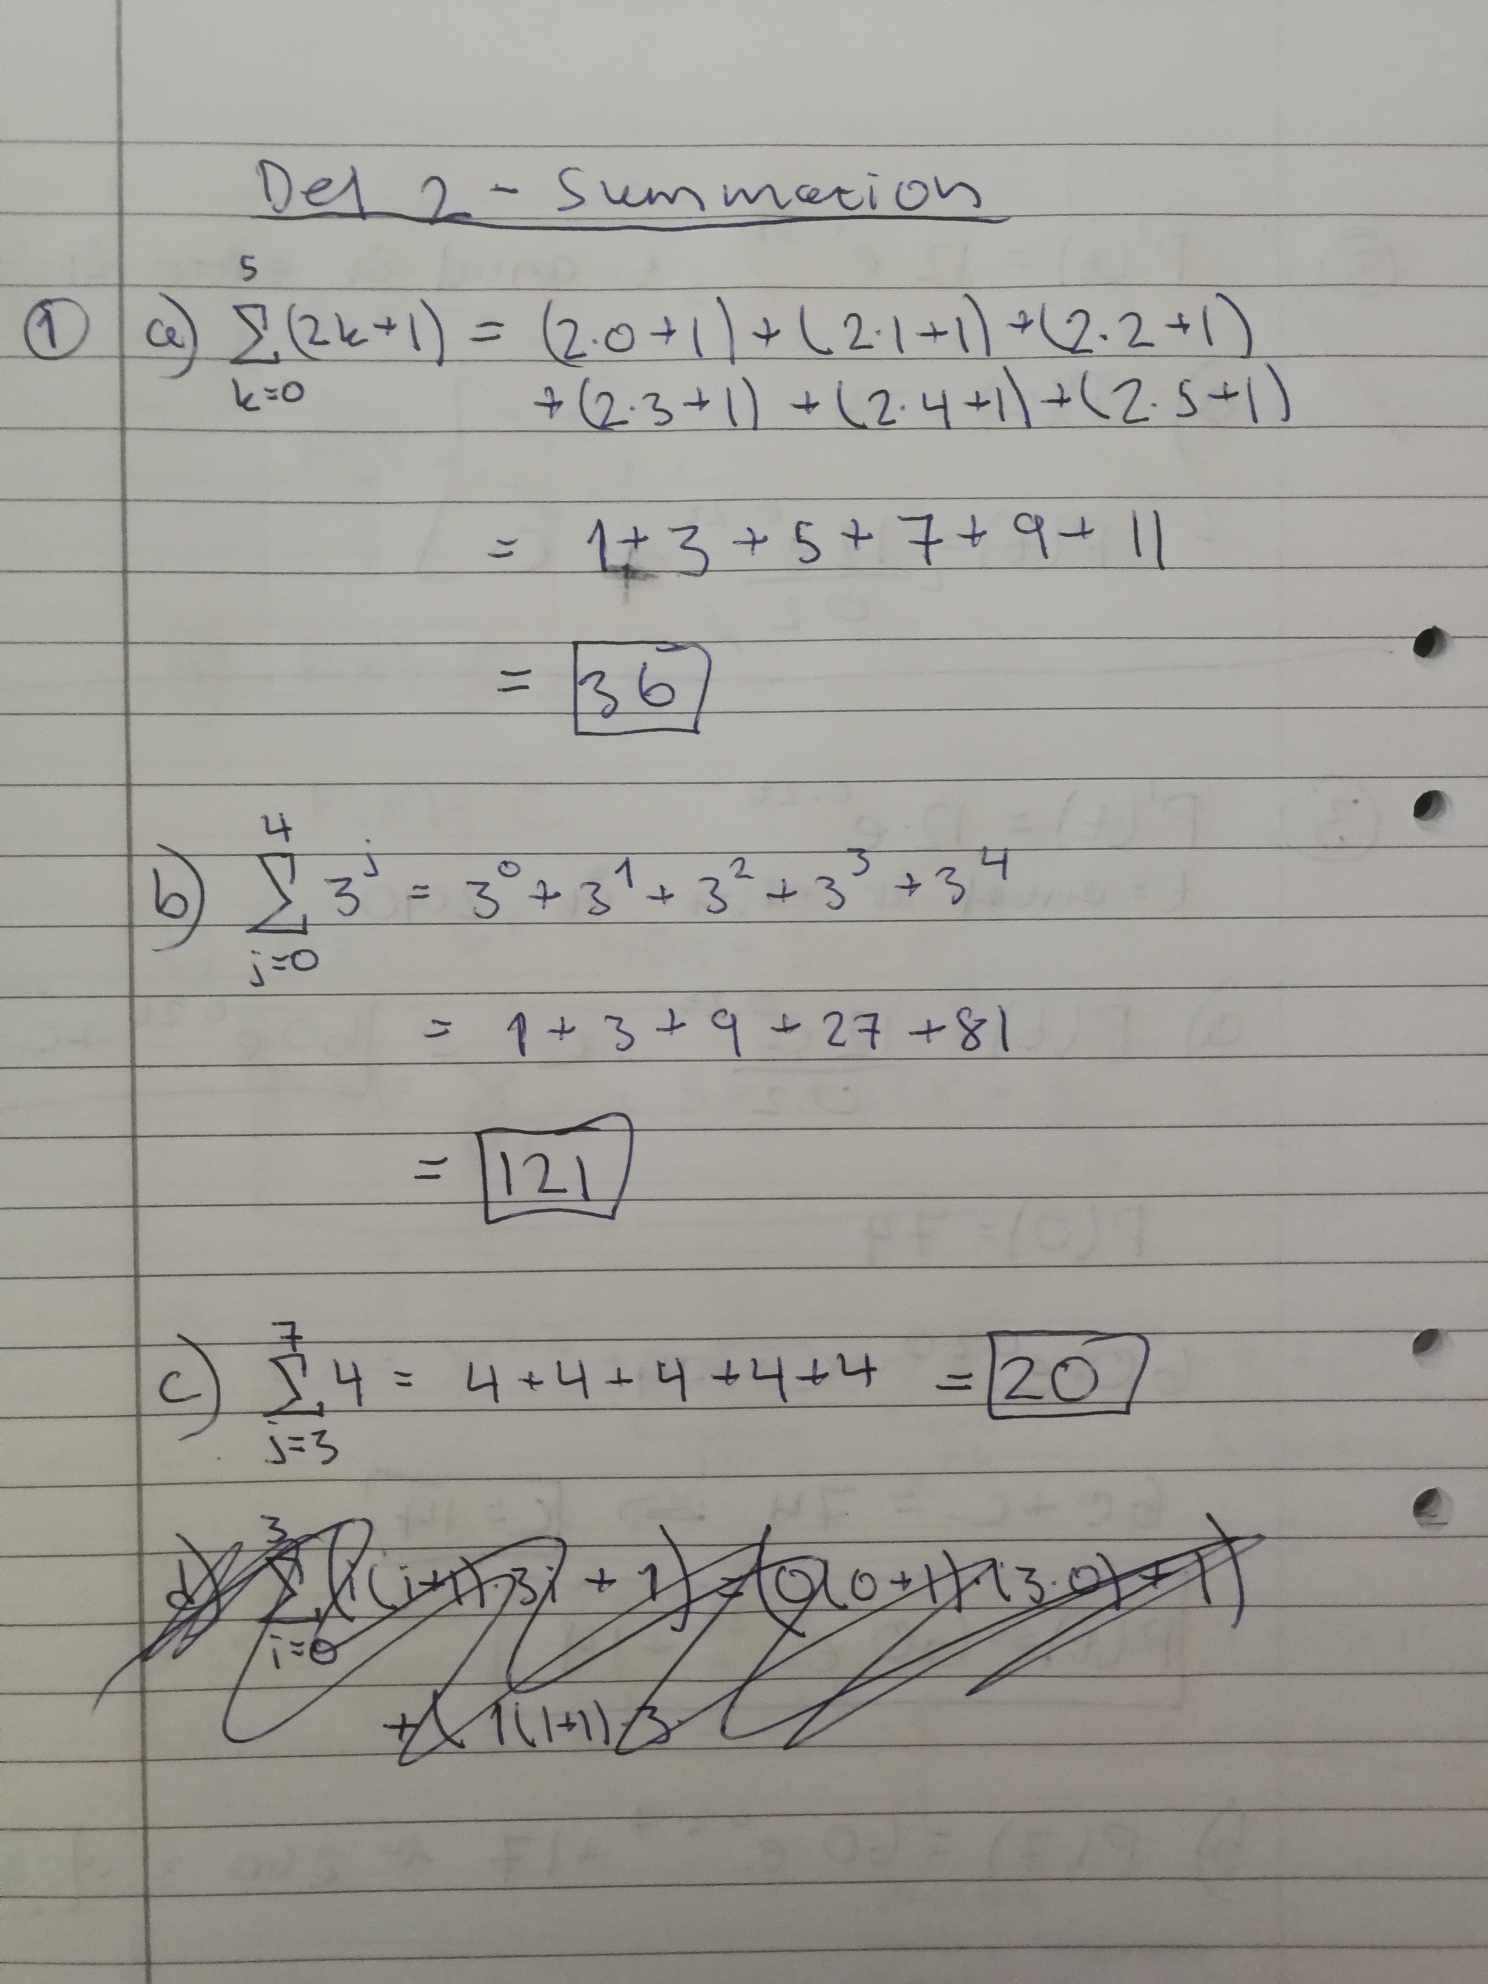 Del 2 - Summation
① a) 5∑k=0 (2k+1) = (2·0+1)+(2·1+1)+(2·2+1)
+(2·3+1)+(2·4+1)+(2·5+1)
= 1+3+5+7+9+11
= 36
b) 4∑j=0 3^j = 3^0+3^1+3^2+3^3+3^4
= 1+3+9+27+81
= 121
c) 7∑j=3 4 = 4+4+4+4+4 = 20
d) 3∑i=0 (i(i+1)·3i+1) = (0(0+1)·(3·0)+1)
+( 1(1+1)·3